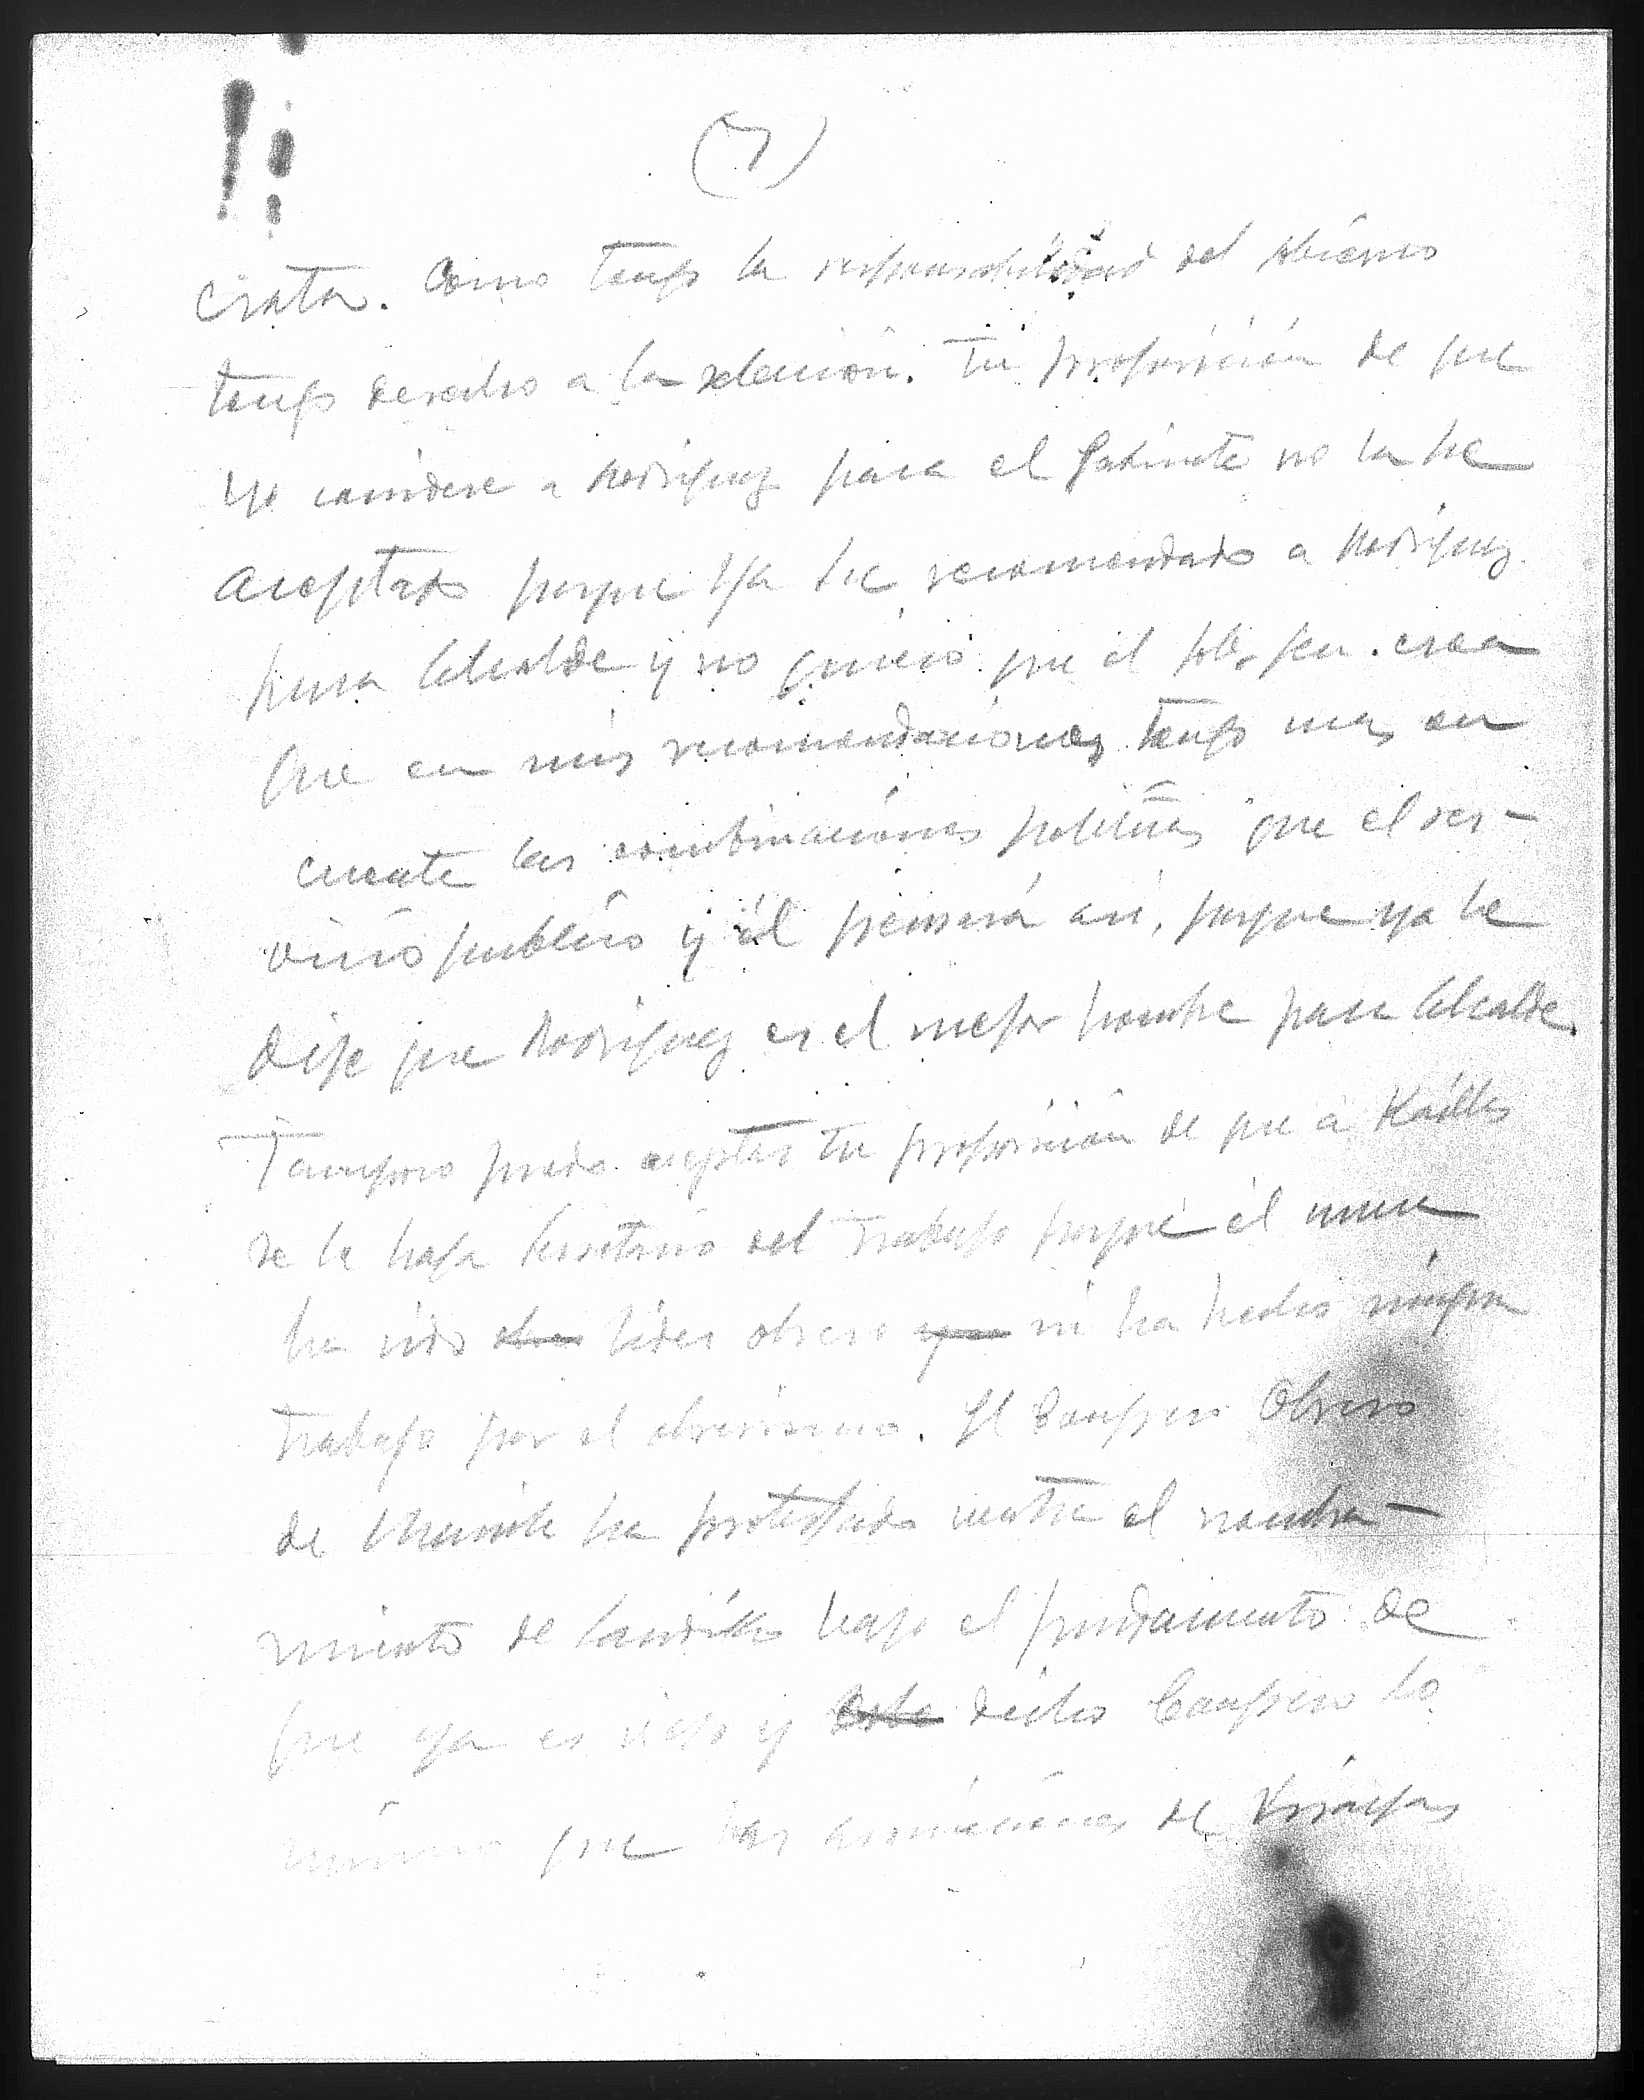 (7)
crata. Como tengo la responsabilidad del Gobierno
tengo derecho a la selección. Tu proposición de que
yo considere a Rodriguez para el Gabinete no la he
aceptado porque ya he recomendado a Rodriguez
para Alcalde y no quiero que el Gob. Gen. crea
que en mis recomendaciones tengo mas en
cuenta las combinaciones politicas que el ser-
vicio publico y él pensará asi, porque ya le
dije que Rodriguez es el mejor hombre para Alcalde.
Tampoco puedo aceptar tu proposición de que a
se le haga Secretario del Trabajo porque él nunca
ha sido obrero lider obrero y no ni ha hecho ningun
trabajo por el obrerismo. El Congreso Obrero
de Manila ha protestado contra el nombra-
miento de bajo el fundamento de
que ya es viejo y dicho Congreso lo
mismo que las asociaciones de